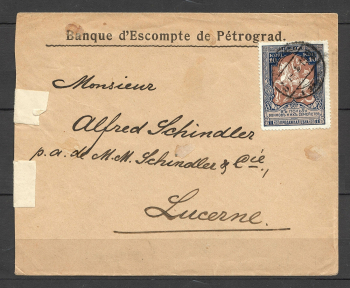 Banque d'Escompte de Pétrograd.
Monsieur
Alfred Schindler
p.a. de M.M. Schindler & Cie,
Lucerne.